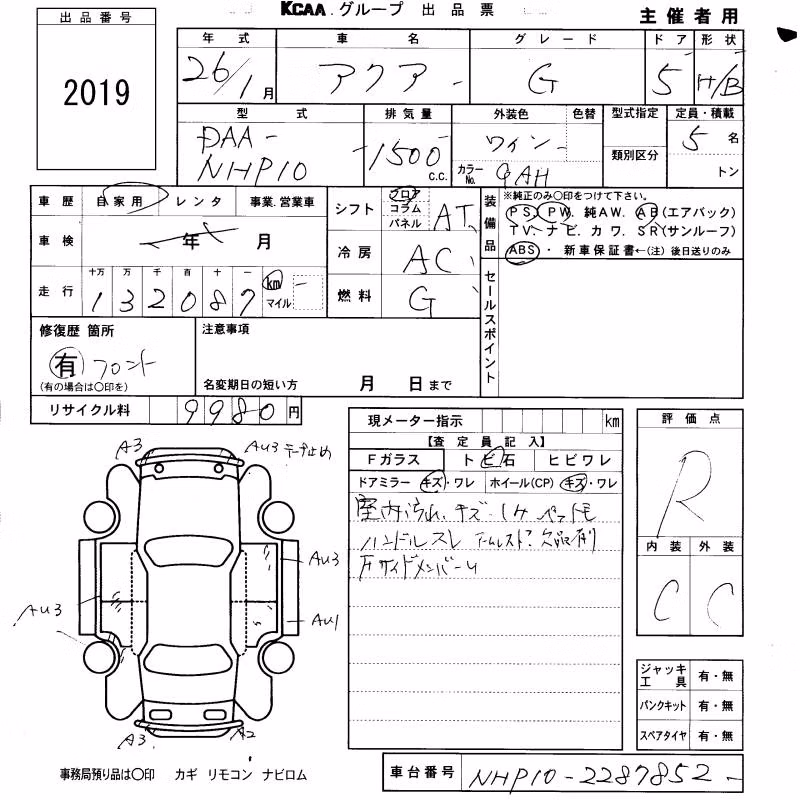 KCAA.グループ 出品票
主催者用
出品番号
2019
年式 車名 グレード ドア 形状
26/1月 アクア G 5 H/B
型式 排気量 外装色 色替 型式指定 定員・積載
DAA-NHP10 1500 c.c. ワイン 5名
カラーNo. 9AH 類別区分 トン
車歴 自家用 レンタ 事業.営業車
車検 年 月
走行 十万 万 千 百 十 一 km マイル
132087
シフト フロア コラム パネル AT
冷房 AC
燃料 G
装備品
※純正のみ○印をつけて下さい。
PS. PW. 純AW. AB(エアバック)
TV. ナビ. カワ. SR(サンルーフ)
ABS・新車保証書←(注)後日送りのみ
セールスポイント
修復歴 箇所
有 フロント
(有の場合は○印を)
注意事項
名変期日の短い方 月 日まで
リサイクル料 9980円
現メーター指示 km
【査定員記入】
Fガラス トビ石 ヒビワレ
ドアミラー キズ・ワレ ホイール(CP) キズ・ワレ
室内汚れ、キズ
ハンドルスレ
Fサイドメンバー
評価点
R
内装 外装
C C
A3 AU3 テープ止め
AU3
AU3
AU1
A3 A2
ジャッキ工具 有・無
パンクキット 有・無
スペアタイヤ 有・無
事務局預り品は○印 カギ リモコン ナビロム
車台番号 NHP10-2287852